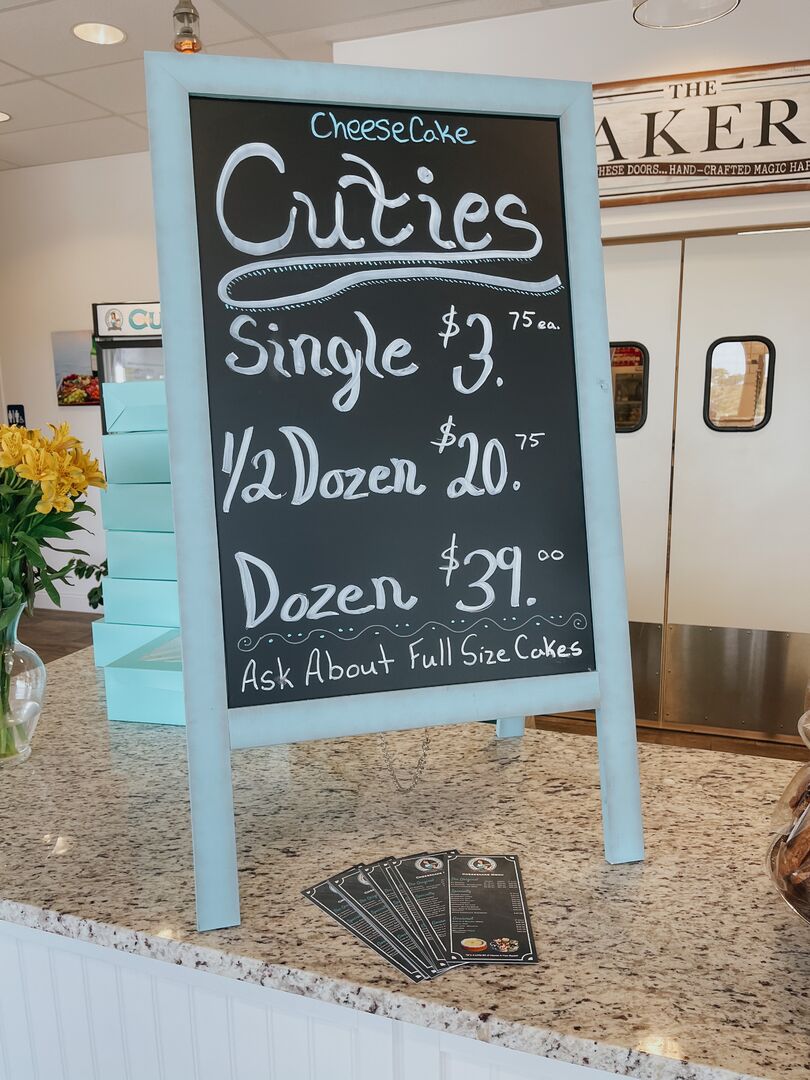 CheeseCake
Cuties
Single $3.75 ea.
1/2 Dozen $20.75
Dozen $39.00
Ask About Full Size Cakes
THE
AKER
HESE DOORS...HAND-CRAFTED MAGIC HA
CU